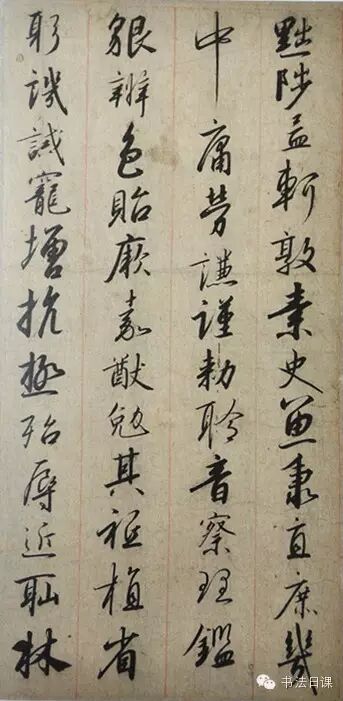 黜陟孟軻敦素史魚秉直庶幾
中庸勞謙謹勅聆音察理鑑
貌辨色貽厥嘉猷勉其祗植省
躬譏誡寵增抗極殆辱近耻林
书法日课